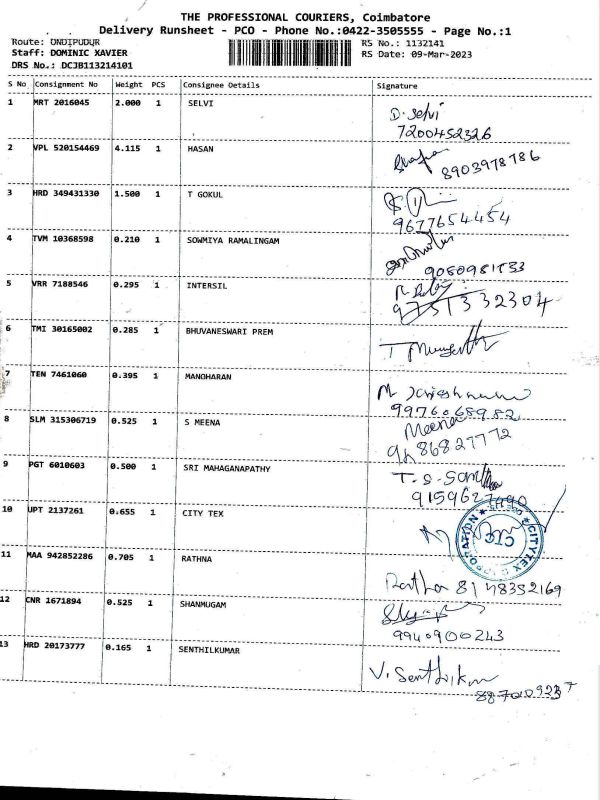 THE PROFESSIONAL COURIERS, Coimbatore
Delivery Runsheet - PCO - Phone No.:0422-3505555 - Page No.:1
Route: ONDIPUDUR
Staff: DOMINIC XAVIER
DRS No.: DCJB113214101
RS No.: 1132141
RS Date: 09-Mar-2023
S No Consignment No Weight PCS Consignee Details Signature
1 MRT 2016045 2.000 1 SELVI
D. Selvi
7200452326
2 VPL 520154469 4.115 1 HASAN
8903978786
3 HRD 349431330 1.500 1 T GOKUL
9677654454
4 TVM 10368598 0.210 1 SOWMIYA RAMALINGAM
5 VRR 7188546 0.295 1 INTERSIL
9751332304
6 TMI 30165002 0.285 1 BHUVANESWARI PREM
7 TEN 7461060 0.395 1 MANOHARAN
8 SLM 315306719 0.525 1 S MEENA
Meena
9 PGT 6010603 0.500 1 SRI MAHAGANAPATHY
10 UPT 2137261 0.655 1 CITY TEX
CITYTEX CORPORATION
CTC
11 MAA 942852286 0.705 1 RATHNA
Rathna 8148352169
12 CNR 1671894 0.525 1 SHANMUGAM
9940900243
13 HRD 20173777 0.165 1 SENTHILKUMAR
V. Senthilkum